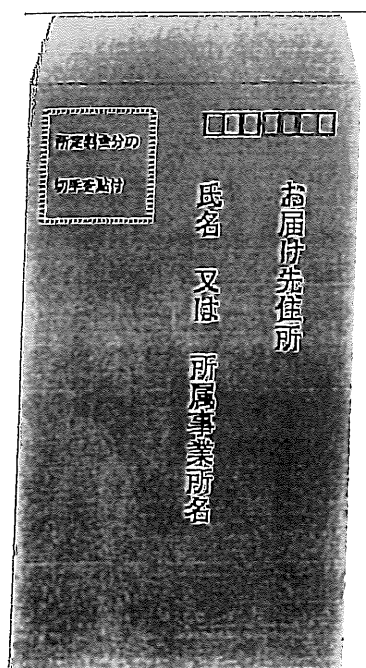 所定料金分の
切手を貼付
お届け先住所
氏名 又は 所属事業所名